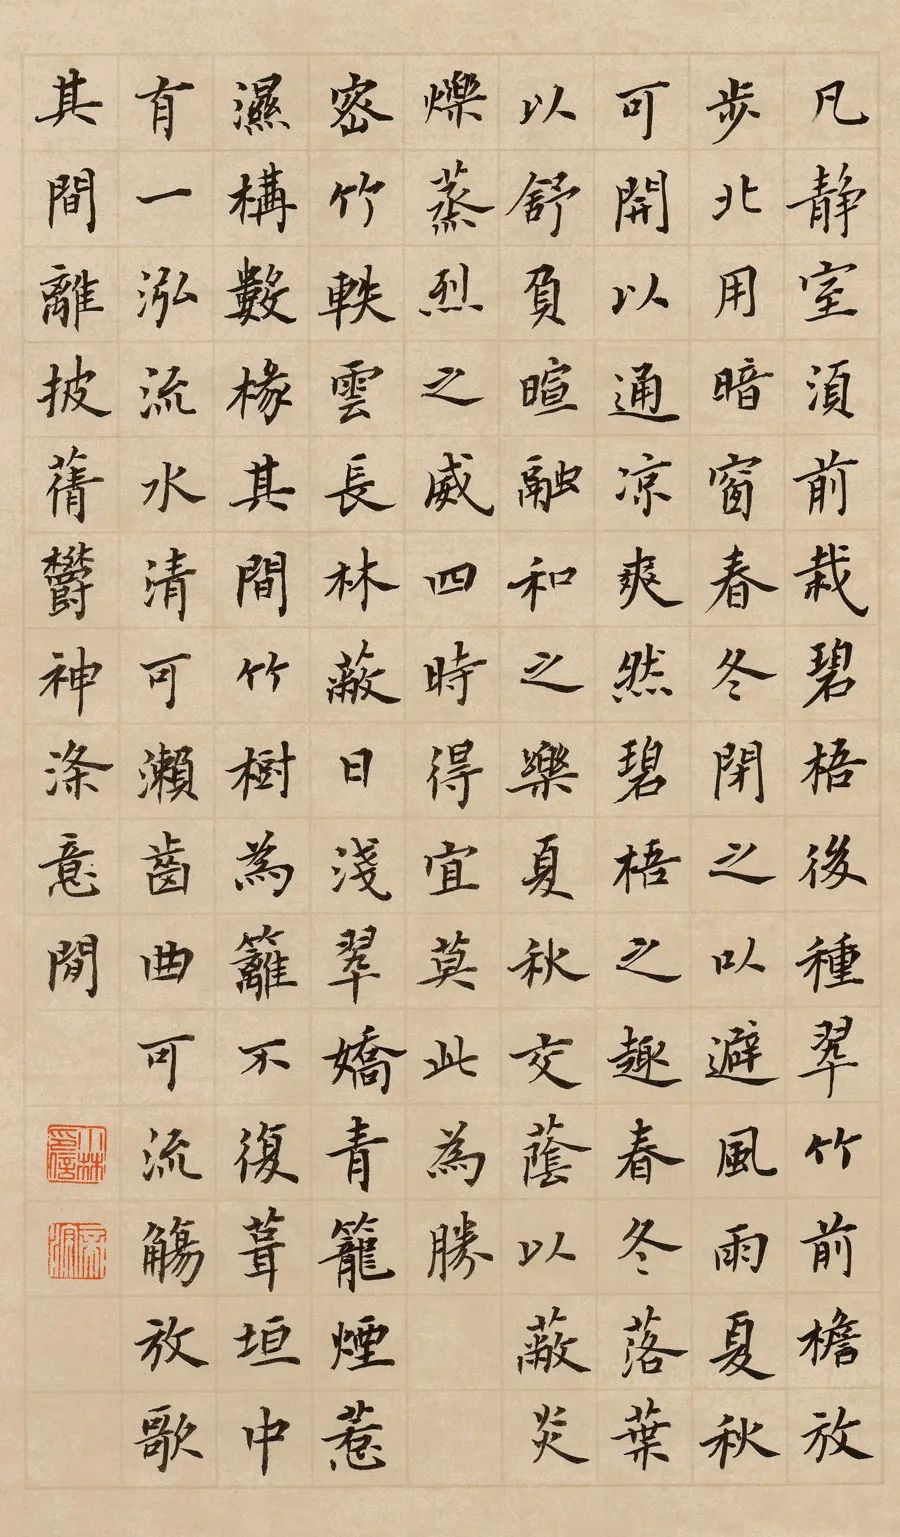 凡静室須前栽碧梧後種翠竹前檐放
步北用暗窗春冬閉之以避風雨夏秋
可開以通凉爽然碧梧之趣春冬落葉
以舒負暄融和之樂夏秋交蔭以蔽炎
爍蒸烈之威四時得宜莫此為勝
密竹軼雲長林蔽日淺翠嬌青籠煙惹
濕構數椽其間竹樹為籬不復葺垣中
有一泓流水清可瀨齒曲可流觴放歌
其間離披蒨鬱神滌意閒